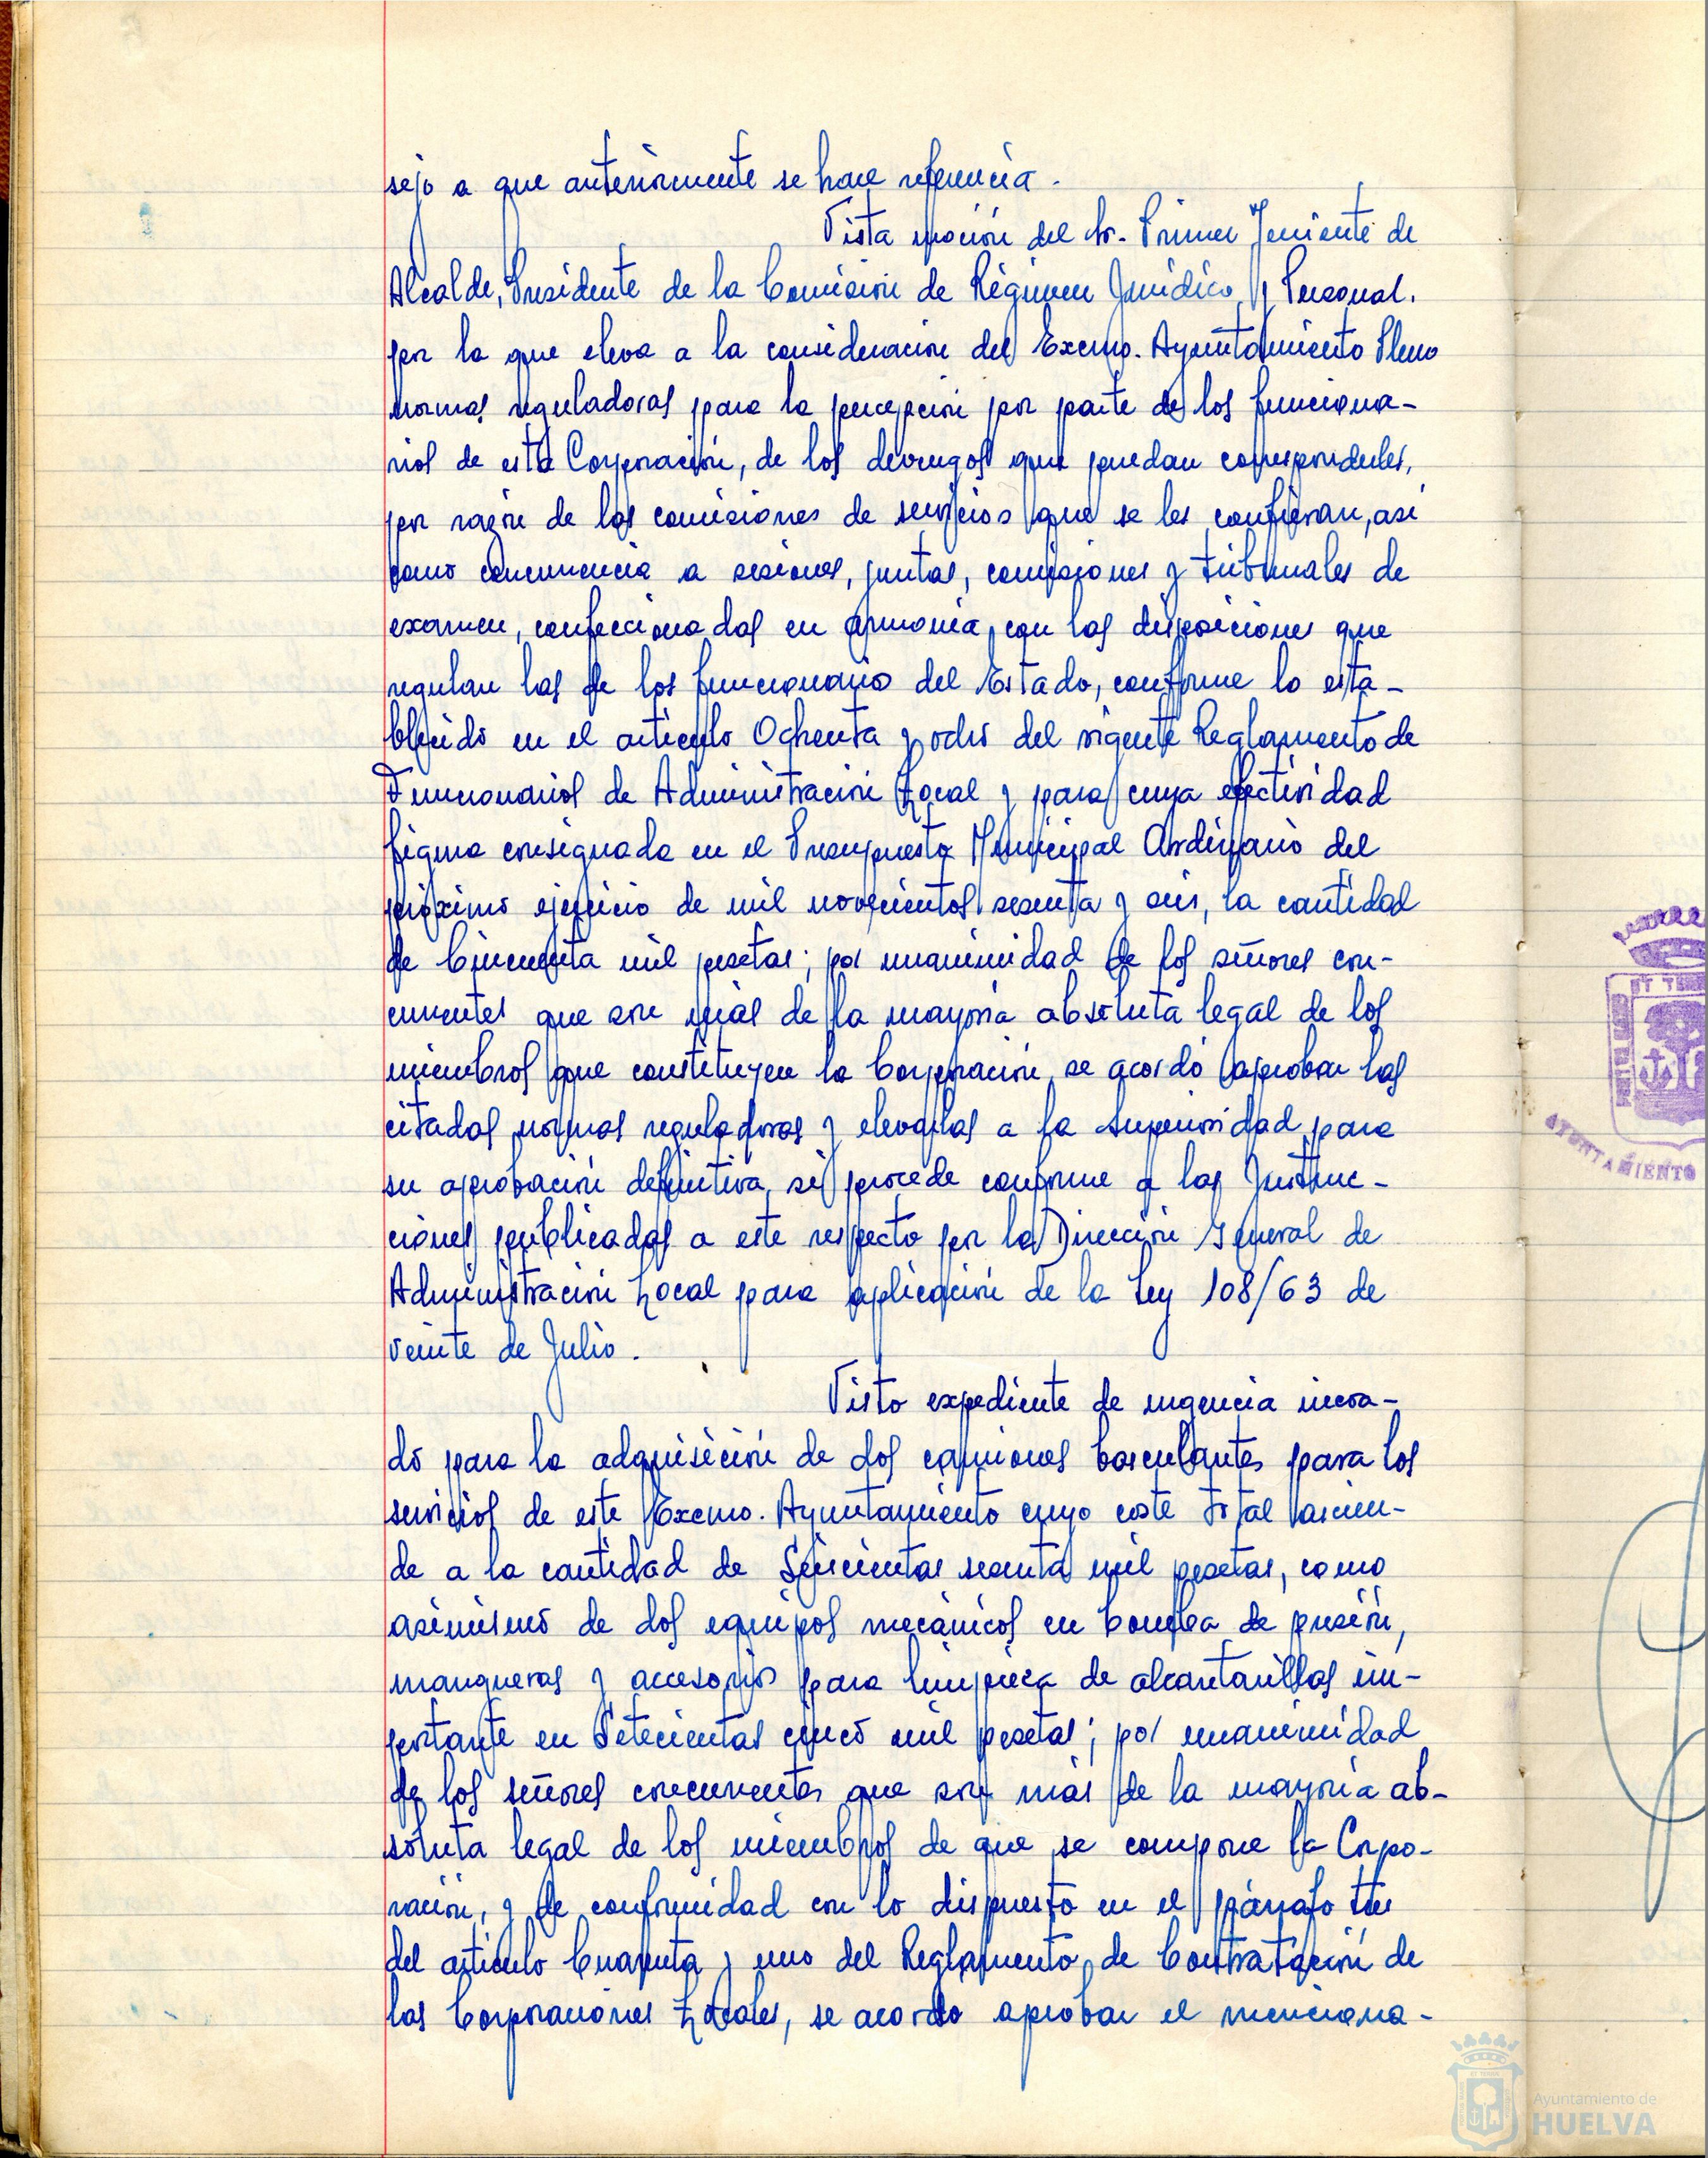 sejo a que anteriormente se hace referencia.
Vista moción del Sr. Primer Teniente de
Alcalde, Presidente de la Comisión de Régimen Jurídico y Personal.
por la que eleva a la consideración del Excmo. Ayuntamiento Pleno
normas reguladoras para la percepción por parte de los funciona-
rios de esta Corporación, de los devengos que puedan corresponderles,
por razón de las comisiones de servicios que se les confieran, asi
como concurrencia a sesiones, juntas, comisiones y tribunales de
examen, confeccionadas en armonía con las disposiciones que
regulan las de los funcionario del Estado, conforme lo esta-
blecido en el articulo Ochenta y ocho del vigente Reglamento de
Funcionarios de Administración Local y para cuya efectividad
figura consignada en el Presupuesto Municipal Ordinario del
próximo ejercicio de mil novecientos sesenta y seis, la cantidad
de Cincuenta mil pesetas; por unanimidad de los señores con-
currentes que son más de la mayoría absoluta legal de los
miembros que constituyen la Corporación, se acordó aprobar las
citadas normas reguladoras y elevarlas a la Superioridad para
su aprobación definitiva, si procede conforme a las Instruc-
ciones publicadas a este respecto por la Dirección General de
Administración Local para aplicación de la Ley 108/63 de
veinte de Julio.
Visto expediente de urgencia incoa-
do para la adquisición de dos camiones basculantes para los
servicios de este Excmo. Ayuntamiento cuyo coste total ascien-
de a la cantidad de Seiscientas sesenta mil pesetas, como
asimismo de dos equipos mecánicos en bomba de presión,
mangueras y accesorios para limpieza de alcantarillas im-
portante en Setecientas cinco mil pesetas; por unanimidad
de los señores concurrentes que son más de la mayoría ab-
soluta legal de los miembros de que se compone la Corpo-
ración, y de conformidad con lo dispuesto en el párrafo tres
del articulo Cuarenta y uno del Reglamento de Contratación de
las Corporaciones Locales, se acordo aprobar el menciona-
ET TERRÆ
AYUNTAMIENTO
Ayuntamiento de
HUELVA